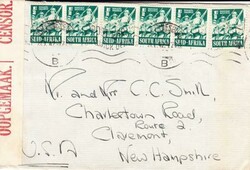 SOUTH AFRICA SUID-AFRIKA SOUTH AFRICA SUID-AFRIKA SOUTH AFRICA SUID-AFRIKA
OOPGEMAAK. CENSOR.
B B
Mr. and Mrs C. C. Smith,
Charlestown Road,
Route 2
Claremont,
New Hampshire
U.S.A